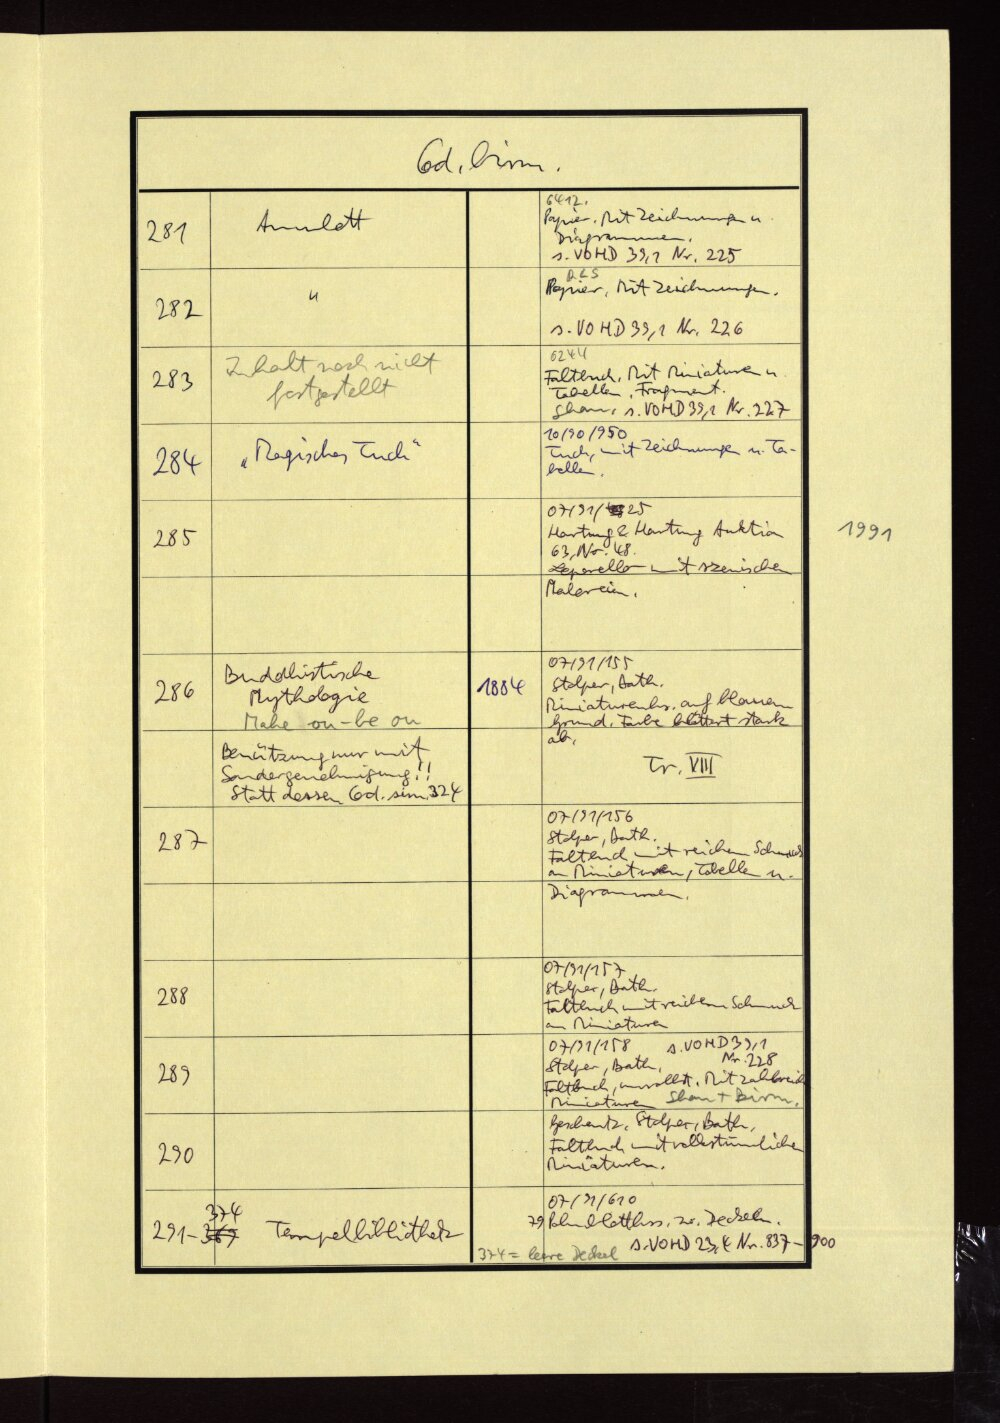 Cod. birm.
281
Amulett
6412.
Papier. Mit Zeichnungen u.
Diagrammen.
s. VOHD 39,1 Nr. 225
282
"
Papier, Mit Zeichnungen.
s. VOHD 39,1 Nr. 226
283
Inhalt noch nicht
festgestellt
6244
Faltbuch, Mit Miniaturen u.
Tabellen, Fragment.
Shan, s. VOHD 39,1 Nr. 227
284
„Magisches Tuch"
10/90/950
Tuch, mit Zeichnungen u. Ta-
bellen.
285
07/91/25
Hartung & Hartung Auktion
63, Nr. 48.
Leporello mit szenischen
Malereien.
1991
286
Buddhistische
Mythologie
Mahe ou-be ou
Benützung nur mit
Sondergenehmigung!!
Statt dessen Cod. sim. 324
1884
07/91/155
Stolper, Bath.
Miniaturenhs. auf blauem
Grund. Farbe blättert stark
ab.
Tr. VIII
287
07/91/156
Stolper, Bath.
Faltbuch mit reichem Schmuck
an Miniaturen, Tabellen u.
Diagrammen.
288
07/91/157
Stolper, Bath.
Faltbuch mit reichem Schmuck
an Miniaturen
289
07/91/158 s. VOHD 39,1
Nr. 228
Stolper, Bath.
Faltbuch, unvollst. Mit zahlreich
Miniaturen Shan + Birm.
290
Geschenk, Stolper, Bath,
Faltbuch mit volkstümlichen
Miniaturen.
374
291-369
Tempelbibliothek
07/91/610
79 Palmblatthss. zw. Deckeln.
s. VOHD 23,4 Nr. 837-900
374 = leere Deckel